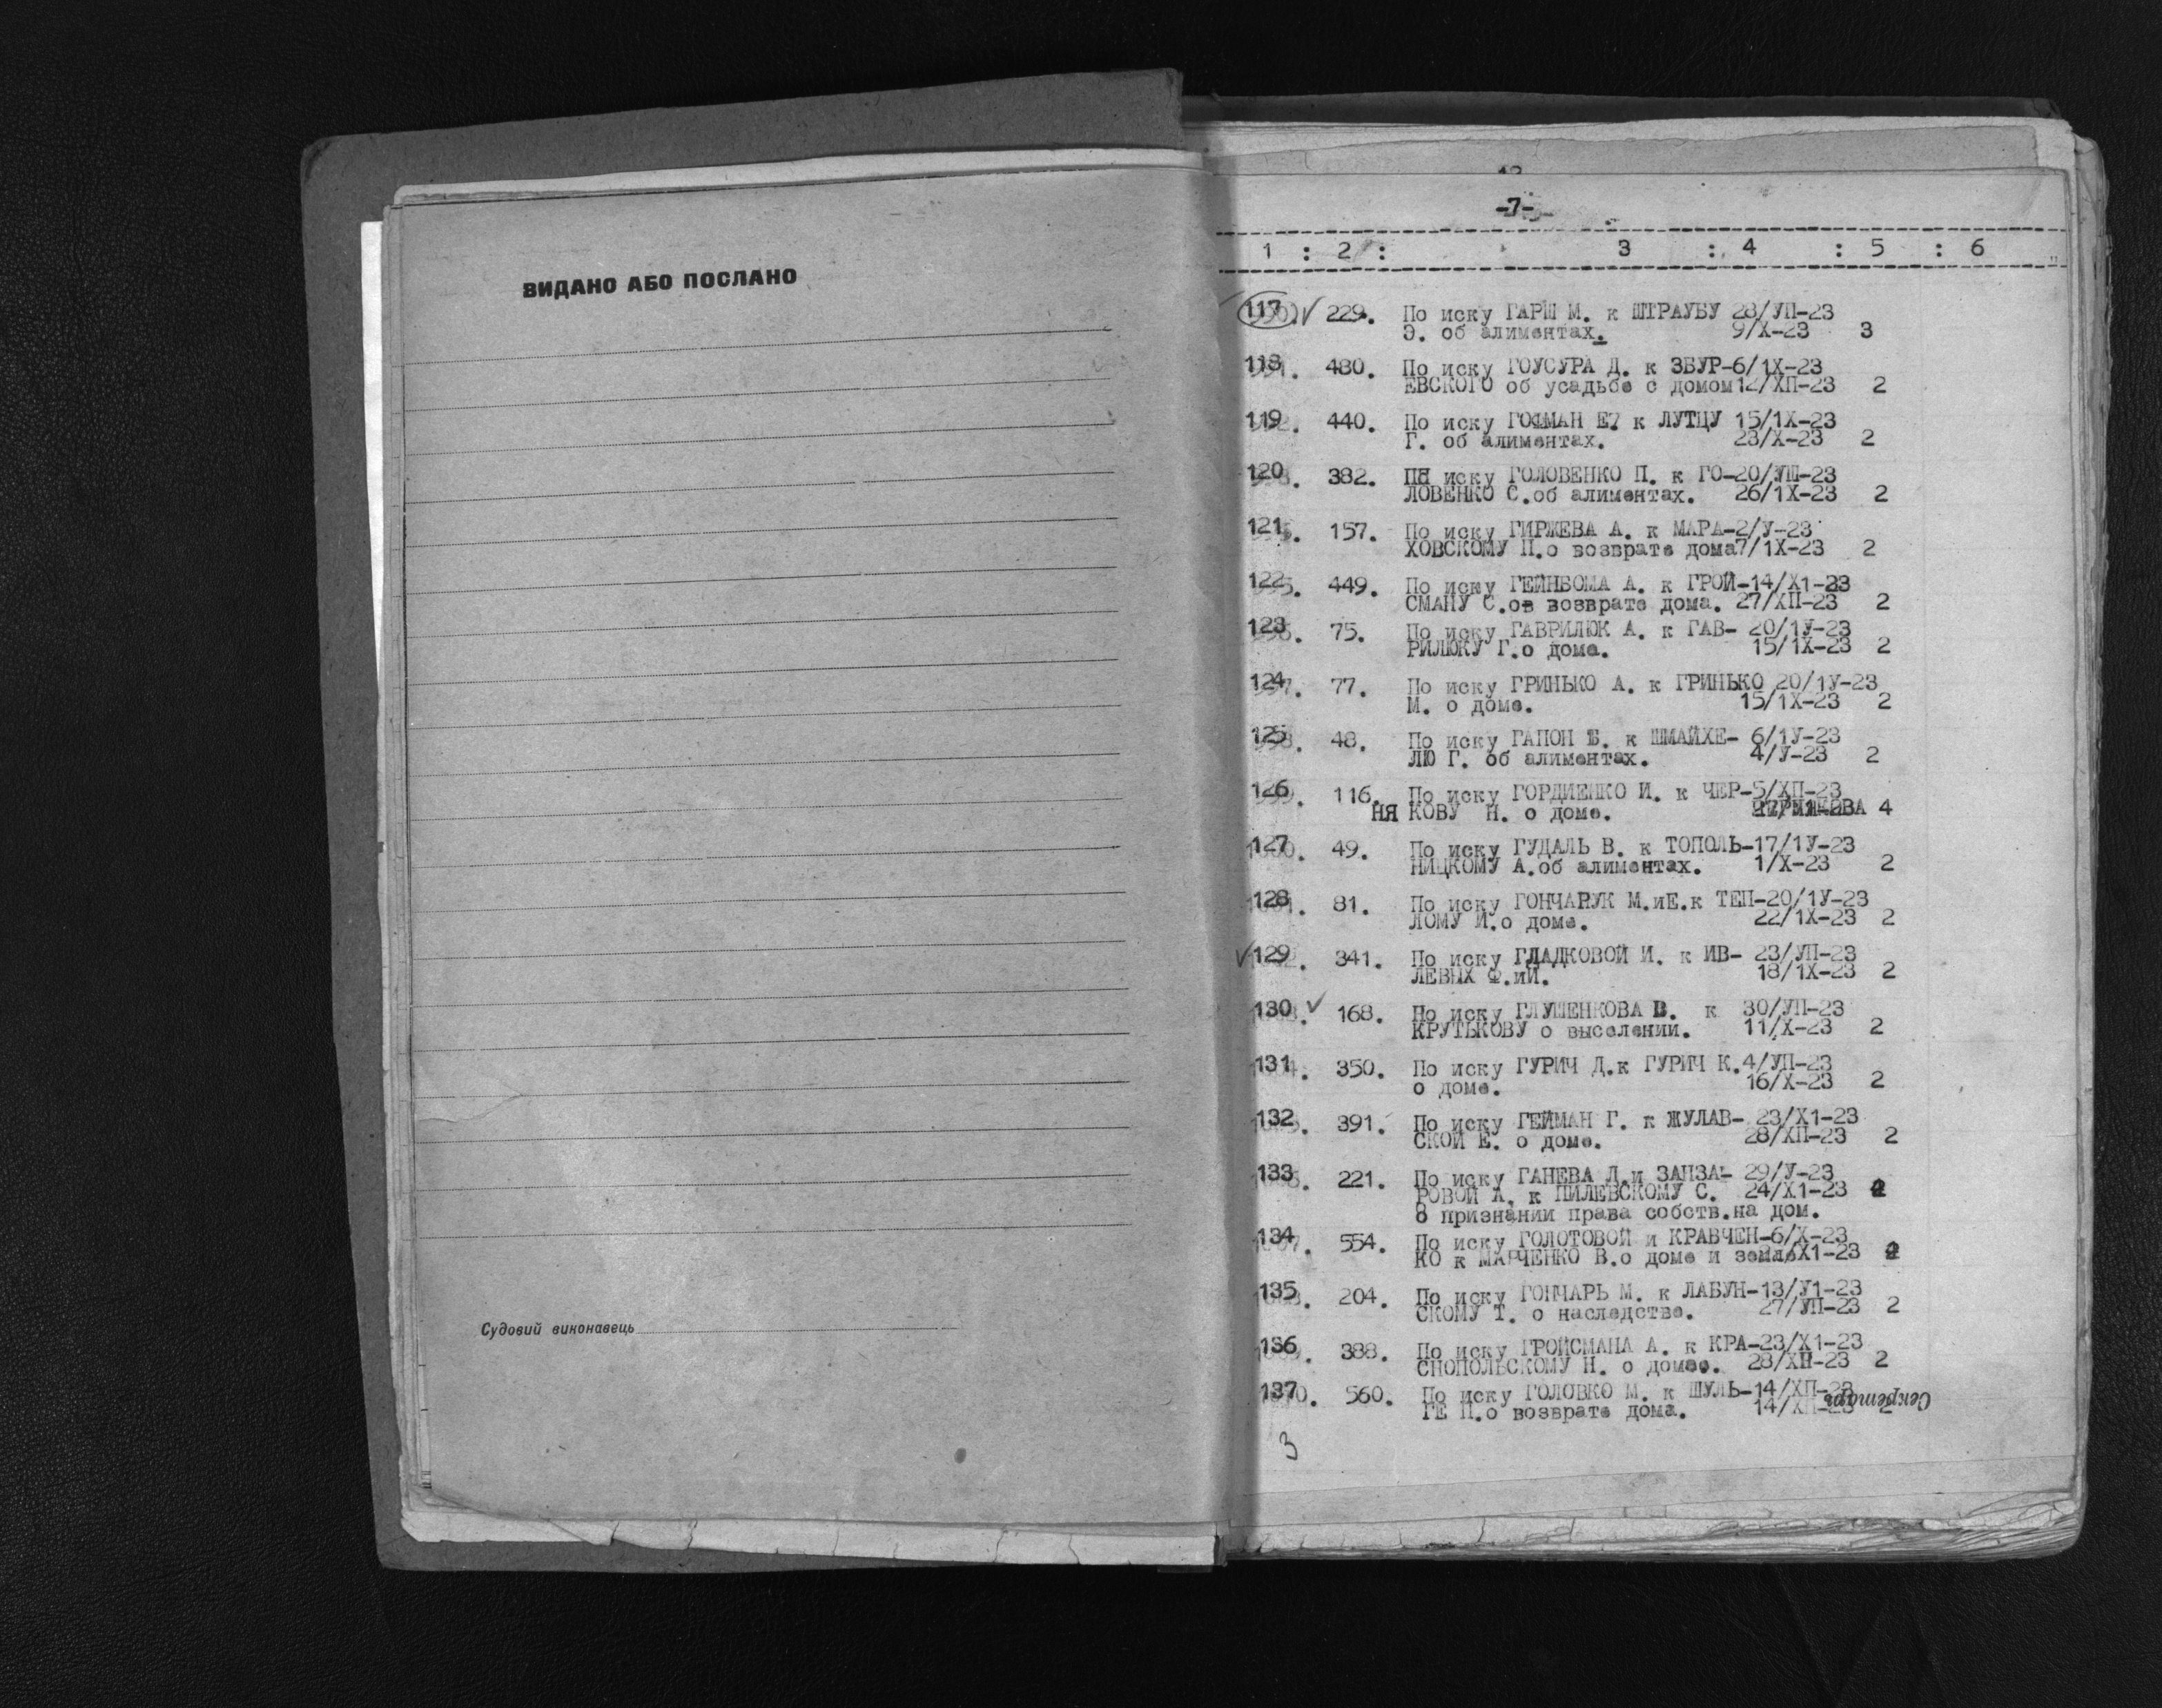 ВИДАНО АБО ПОСЛАНО
Судовий виконавець
-7-
1 : 2 : 3 : 4 : 5 : 6
117. 229. По иску ГАРШ М. к ШТРАУБУ 28/УП-23
Э. об алиментах. 9/Х-23 3
118. 480. По иску ГОУСУРА Д. к ЗБУР-6/1Х-23
ЕВСКОГО об усадьбе с домом 12/ХП-23 2
119. 440. По иску ГОФМАН Е? к ЛУТЦУ 15/1Х-23
Г. об алиментах. 23/Х-23 2
120. 382. иску ГОЛОВЕНКО П. к ГО-20/УШ-23
ЛОВЕНКО С.об алиментах. 26/1Х-23 2
121. 157. По иску ГИРЖЕВА А. к МАРА-2/У-23
ХОВСКОМУ П.о возврате дома7/1Х-23 2
122. 449. По иску ГЕЙНБОМА А. к ГРОЙ-14/Х1-23
СМАНУ С.ов возврате дома. 27/ХП-23 2
123. 75. По иску ГАВРИЛЮК А. к ГАВ- 20/1У-23
РИЛЮКУ Г.о доме. 15/1Х-23 2
124. 77. По иску ГРИНЬКО А. к ГРИНЬКО 20/1У-23
М. о доме. 15/1Х-23 2
125. 48. По иску ГАПОН Б. к ШМАЙХЕ- 6/1У-23
ЛЮ Г. об алиментах. 4/У-23 2
126. 116. По иску ГОРДИЕНКО И. к ЧЕР-5/ХП-23
НЯ КОВУ Н. о доме. 4
127. 49. По иску ГУДАЛЬ В. к ТОПОЛЬ-17/1У-23
НИЦКОМУ А.об алиментах. 1/Х-23 2
128. 81. По иску ГОНЧАРУК М.иЕ.к ТЕП-20/1У-23
ЛОМУ И.о доме. 22/1Х-23 2
129. 341. По иску ГЛАДКОВОЙ И. к ИВ- 23/УП-23
ЛЕВЫХ Ф.иИ. 18/1Х-23 2
130. 168. По иску ГЛУШЕНКОВА В. к 30/УП-23
КРУТЬКОВУ о выселении. 11/Х-23 2
131. 350. По иску ГУРИЧ Д.к ГУРИЧ К.4/УП-23
о доме. 16/Х-23 2
132. 391. По иску ГЕЙМАН Г. к ЖУЛАВ- 23/Х1-23
СКОЙ Е. о доме. 28/ХП-23 2
133. 221. По иску ГАНЕВА Л.и ЗАПЗА- 29/У-23
РОВОЙ А. к ПИЛЕВСКОМУ С. 24/Х1-23
О признании права собств.на дом.
134. 554. По иску ГОЛОТОВОЙ и КРАВЧЕН-6/Х-23
КО к МАРЧЕНКО В.о доме и земле Х1-23
135. 204. По иску ГОНЧАРЬ М. к ЛАБУН-13/У1-23
СКОМУ Т. о наследстве. 27/УП-23 2
136. 388. По иску ГРОЙСМАНА А. к КРА-23/Х1-23
СНОПОЛЬСКОМУ Н. о домео. 28/ХП-23 2
137. 560. По иску ГОЛОВКО М. к ШУЛЬ-14/ХП-23
ГЕ П.о возврате дома. 14/ХП-23 2
Секретарь
3